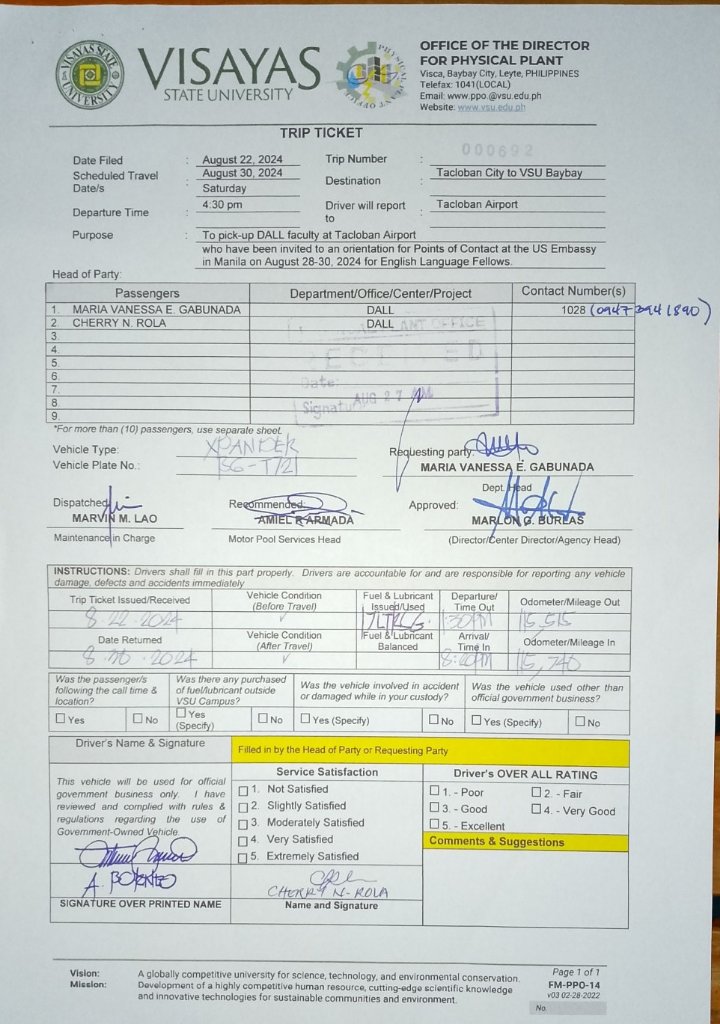 VISAYAS
STATE UNIVERSITY
VISAYAS STATE UNIVERSITY
OFFICE OF THE DIRECTOR
FOR PHYSICAL PLANT
Visca, Baybay City, Leyte, PHILIPPINES
Telefax: 1041(LOCAL)
Email: www.ppo.@vsu.edu.ph
Website: www.vsu.edu.ph
TRIP TICKET
000692
Date Filed : August 22, 2024 Trip Number :
Scheduled Travel Date/s : August 30, 2024 Saturday Destination : Tacloban City to VSU Baybay
Departure Time : 4:30 pm Driver will report to : Tacloban Airport
Purpose : To pick-up DALL faculty at Tacloban Airport
who have been invited to an orientation for Points of Contact at the US Embassy
in Manila on August 28-30, 2024 for English Language Fellows.
Head of Party:
Passengers Department/Office/Center/Project Contact Number(s)
1. MARIA VANESSA E. GABUNADA DALL 1028 (09473941890)
2. CHERRY N. ROLA DALL
3.
4.
5.
6.
7.
8.
9.
ANT OFFICE
Date: AUG 27
*For more than (10) passengers, use separate sheet.
Vehicle Type: XPANDER
Vehicle Plate No.:
Requesting party:
MARIA VANESSA E. GABUNADA
Dept. Head
Dispatched: Recommended: Approved:
MARVIN M. LAO AMIEL R ARMADA MARLON G. BURLAS
Maintenance in Charge Motor Pool Services Head (Director/Center Director/Agency Head)
INSTRUCTIONS: Drivers shall fill in this part properly. Drivers are accountable for and are responsible for reporting any vehicle
damage, defects and accidents immediately
Trip Ticket Issued/Received Vehicle Condition (Before Travel) Fuel & Lubricant Issued/Used Departure/ Time Out Odometer/Mileage Out
8-22-2024 ✓ 1:30PM 115,515
Date Returned Vehicle Condition (After Travel) Fuel & Lubricant Balanced Arrival/ Time In Odometer/Mileage In
8-30-2024 ✓ 115,740
Was the passenger/s following the call time & location? Was there any purchased of fuel/lubricant outside VSU Campus? Was the vehicle involved in accident or damaged while in your custody? Was the vehicle used other than official government business?
☐ Yes ☐ No ☐ Yes (Specify) ☐ No ☐ Yes (Specify) ☐ No ☐ Yes (Specify) ☐ No
Driver's Name & Signature Filled in by the Head of Party or Requesting Party
This vehicle will be used for official
government business only. I have
reviewed and complied with rules &
regulations regarding the use of
Government-Owned Vehicle.
SIGNATURE OVER PRINTED NAME
Service Satisfaction
☐ 1. Not Satisfied
☐ 2. Slightly Satisfied
☐ 3. Moderately Satisfied
☐ 4. Very Satisfied
☐ 5. Extremely Satisfied
CHERRY N. ROLA
Name and Signature
Driver's OVER ALL RATING
☐ 1. - Poor ☐ 2. - Fair
☐ 3. - Good ☐ 4. - Very Good
☐ 5. - Excellent
Comments & Suggestions
Vision: A globally competitive university for science, technology, and environmental conservation.
Mission: Development of a highly competitive human resource, cutting-edge scientific knowledge
and innovative technologies for sustainable communities and environment.
Page 1 of 1
FM-PPO-14
v03 02-28-2022
No.